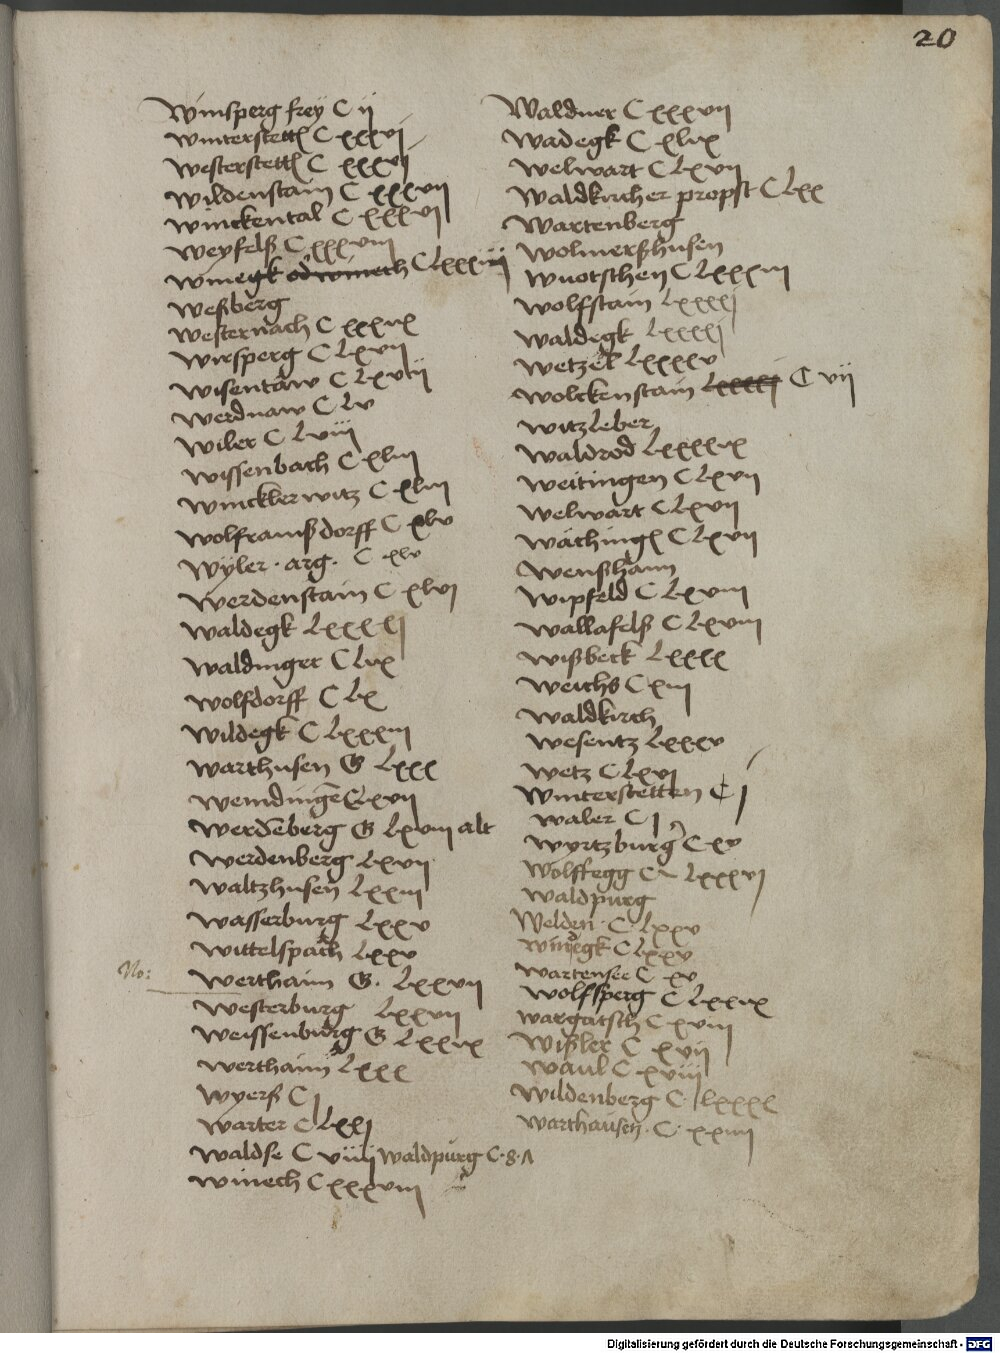 20
Winsperg frey C ij
Winterstett C xxxvj
Westerstett C xxxvj
Wildenstain C xxxvij
Winckental C xxxvj
Weyfelß C xxxviij
Winegk C Lxxxiij
Weßberg
Westernach C xxxix
Wirsperg C Lxvij
Wisentaw C Lxvij
Werdnaw C Lv
Wiler C Lviij
Wissenbach C xliij
Wincklerwitz C xliij
Wolframßdorff C xlv
Wyler . arg . C xlv
Werdenstain C xlvj
Waldegk Lxxxxj
Waldinger C Lix
Wolfdorff C Lx
Wildegk C Lxxxiij
Warthusen G Lxxx
Wemdingē C Lxvij
Werdēberg G Lxviij alt
Werdenberg Lxvij
Waltzhusen Lxxiij
Wasserburg Lxxv
Wittelspach Lxxv
No:
Werthaim G. Lxxvij
Westerburg Lxxvij
Weissenburg G Lxxix
Werthaim Lxxx
Wyerß C j
Warter C Lxxj
Waldse C viiij Waldpurg C . 8 .
Winech C xxxviij
Waldner C xxxvij
Wadegk C xlix
Welwart C Lxvij
Waldkircher propst C Lxx
Wartenberg
Wolmerßhusen
Wuotschen C Lxxxiij
Wolfstain Lxxxxj
Waldegk Lxxxxj
Wetzel Lxxxxv
Wolckenstain Lxxxxj C vij
Witzleber
Waldrod Lxxxxix
Weitingen C Lxvij
Welwart C Lxvij
Wāching C Lxvij
Wenßhann
Wipfeld C Lxviij
Wallafelß C Lxviij
Wißbeck Lxxxx
Weichs C xiij
Waldkirch
Wesentz Lxxxv
Wetz C Lxvj
Winterstetten C j
Waler C j
Wyrtzburg C xv
Wolffegg C Lxxxvj
Waldpurg
Welden . C . Lxxv
Winegk C Lxxv
Wartensee C xv
Wolfsperg C Lxxxix
Wargatsch C xviij
Wißler C xvij
Waul C xviij
Wildenberg C . Lxxxx
Warthausen . C . xxiiij